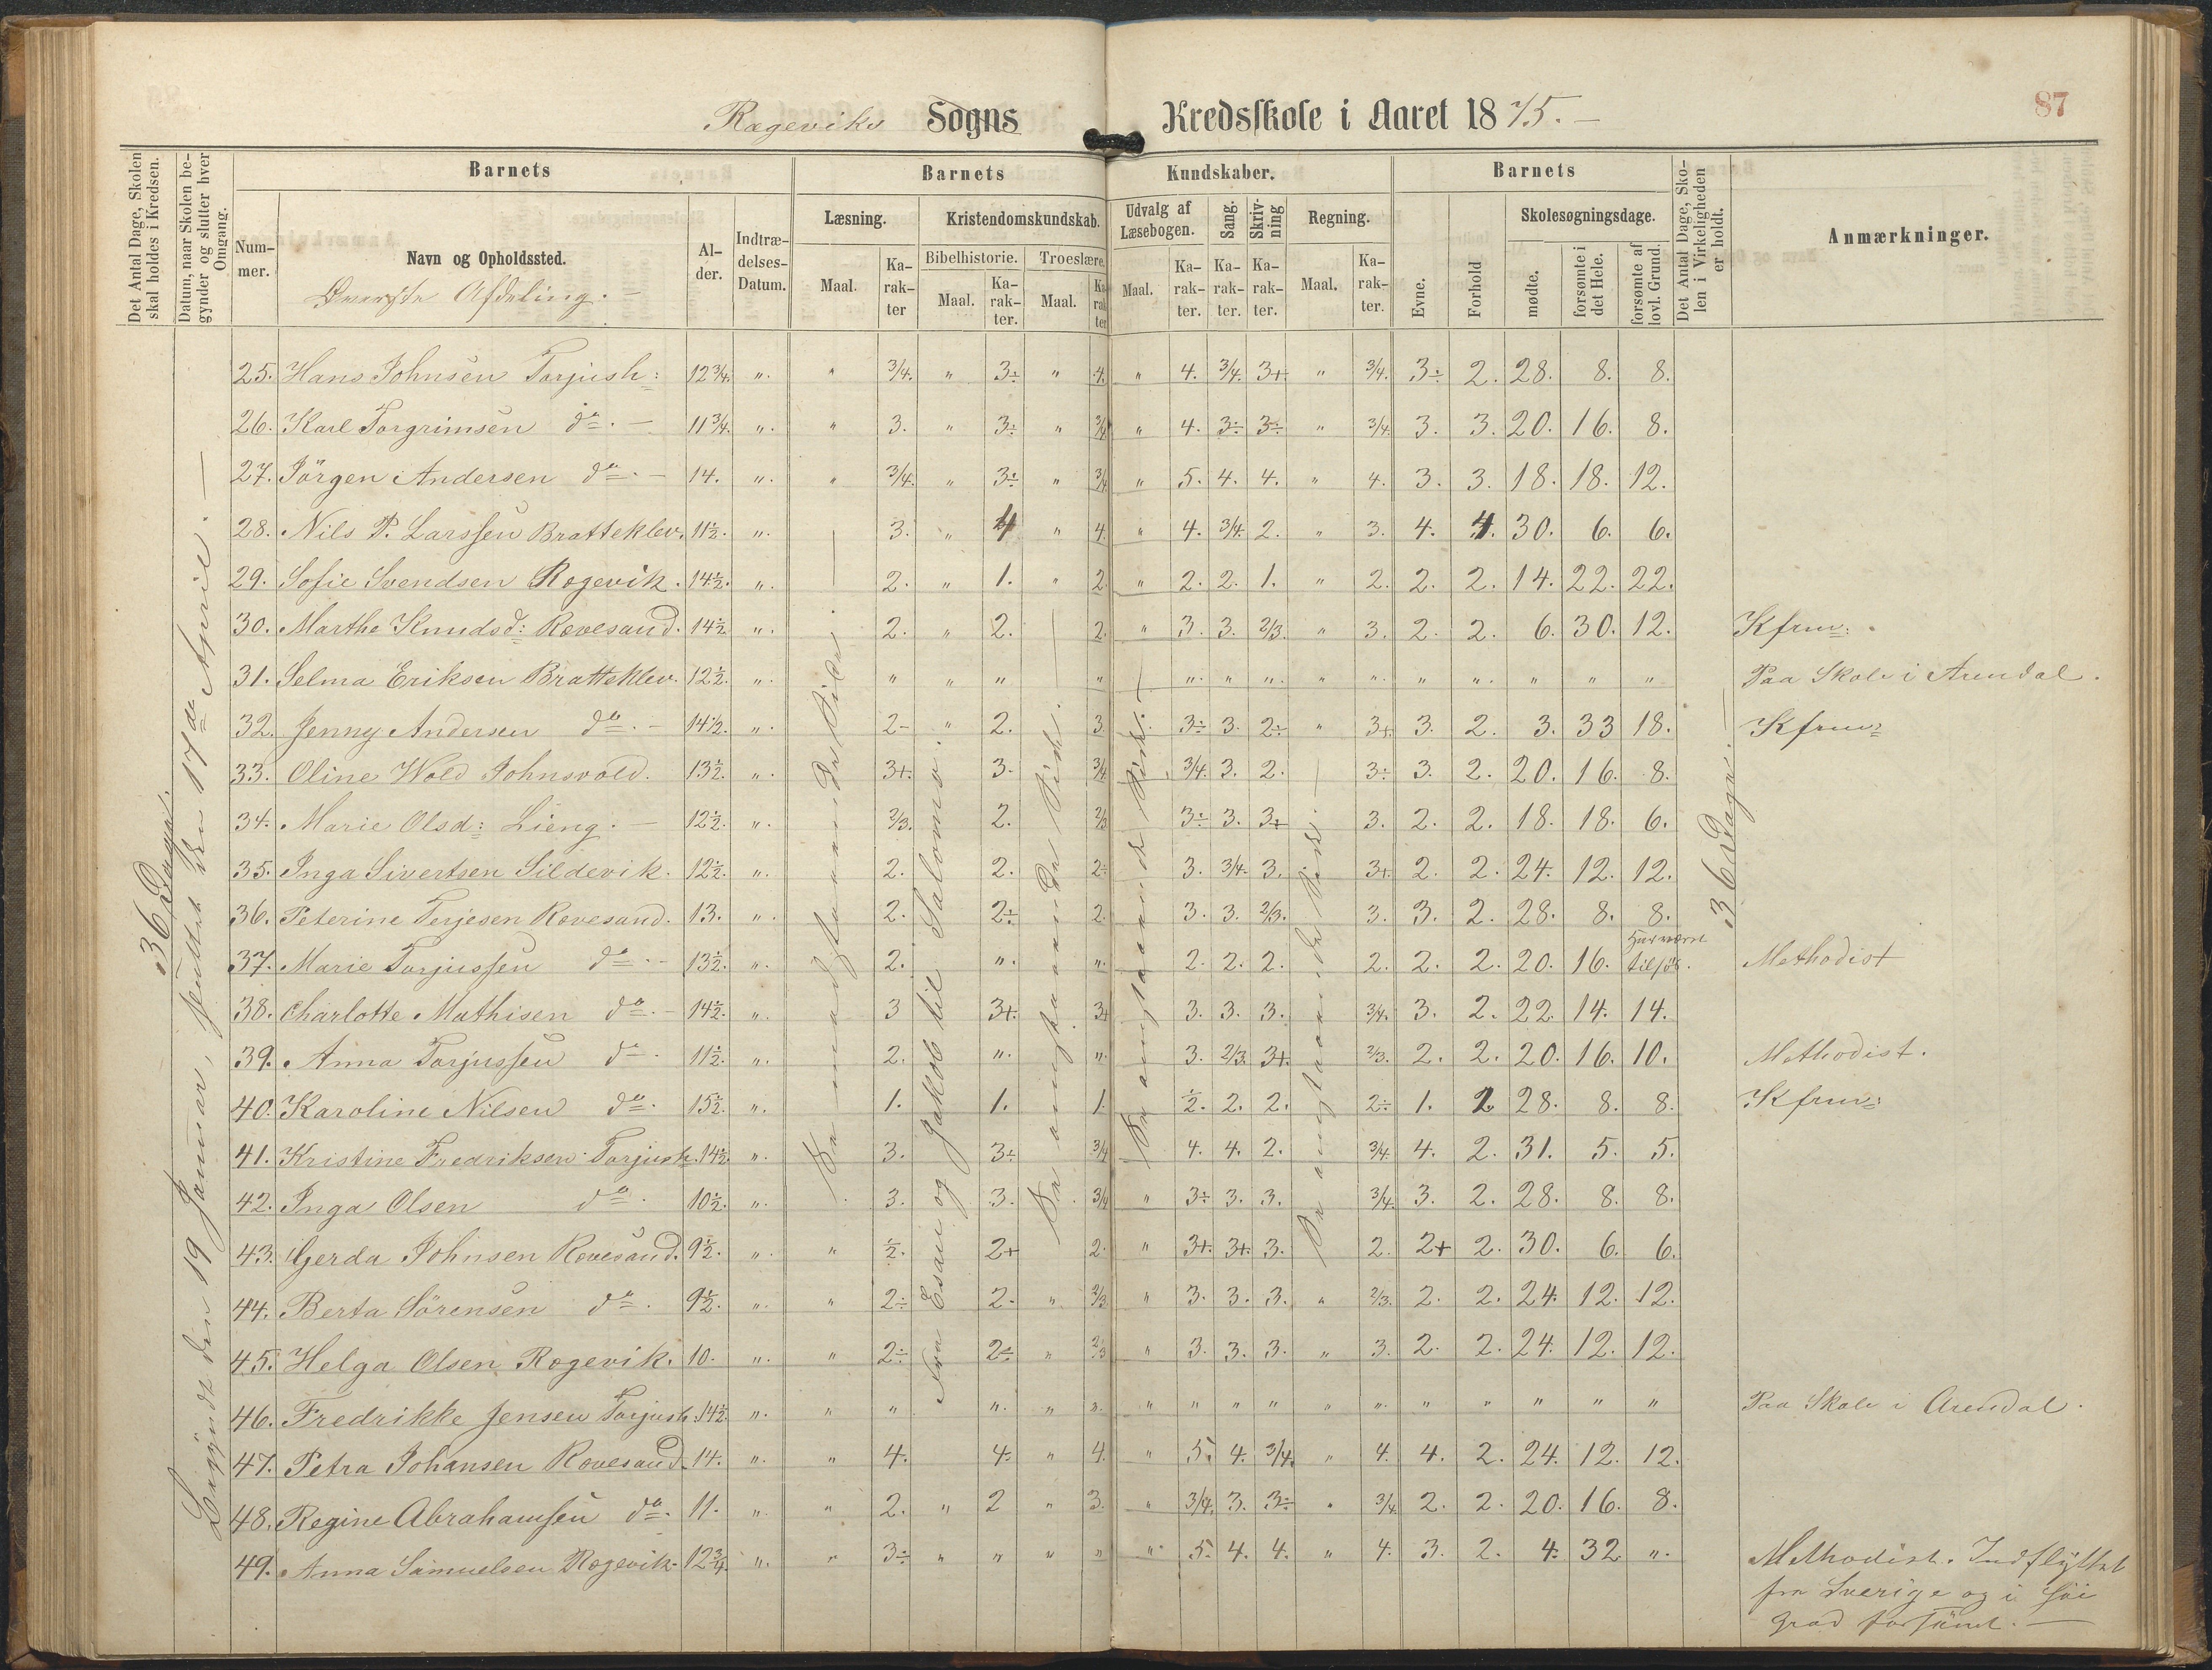 Rægeviks Sogns Kredsskole i Aaret 1875. —
87
Det Antal Dage, Skolen skal holdes i Kredsen.
Datum, naar Skolen begynder og slutter hver Omgang.
Barnets
Barnets Kundskaber.
Barnets
Det Antal Dage, Skolen i Virkeligheden er holdt.
Anmærkninger.
Nummer.
Navn og Opholdssted.
Øverste Afdeling. —
Alder.
Indtrædelses-Datum.
Læsning.
Kristendomskundskab.
Bibelhistorie. Troeslære.
Udvalg af Læsebogen.
Sang.
Skrivning
Regning.
Maal. Karakter Maal. Karakter. Maal. Karakter Maal. Karakter. Karakter. Karakter. Maal. Karakter.
Evne. Forhold
Skolesøgningsdage.
mødte. forsømte i det Hele. forsømte af lovl. Grund.
36 Dage.
Begyndt den 19 Januar, sluttet den 17de April. —
Fra Esau og Jakob til Salomo.
36 Dage. —
25. Hans Johnsen Torjush: 12 3/4. ". " 3/4. " 3÷ " 4. " 4. 3/4. 3+. " 3/4. 3÷ 2. 28. 8. 8.
26. Karl Torgrimsen do. — 11 3/4. ". " 3. " 3÷ " 3/4 " 4. 3÷ 3÷ " 3/4. 3. 3. 20. 16. 8.
27. Jörgen Andersen do. — 14. ". " 3/4. " 3÷ " 3/4 " 5. 4. 4. " 4. 3. 3. 18. 18. 12.
28. Nils P. Larssen Bratteklev. 11½. ". 3. " 4 " 4. " 4. 3/4. 2. " 3. 4. 4. 30. 6. 6.
29. Sofie Svendsen Rægevik. 14½. ". 2. " 1. " 2. " 2. 2. 1. " 2. 2. 2. 14. 22. 22.
30. Marthe Knudsd: Rævesand. 14½ ". 2. " 2. 2. " 3. 3. 2/3. " 3. 2. 2. 6. 30. 12. Kfrm:
31. Selma Eriksen Bratteklev. 12½. ". " " " " ". " ". ". " ". " " " Paa Skole i Arendal.
32. Jenny Andersen do. — 14½. ". 2- " 2. 3. 3÷ 3. 2÷ " 3+. 3. 2. 3. 33 18. Kfrm:
33. Oline Wold Johnsvold. 13½. ". 3+. 3. 3/4 3/4. 3. 2. 3÷ 3. 2. 20. 16. 8.
34. Marie Olsd: Lieng. — 12½. ". 2/3. 2. 2/3 3÷ 3. 3+ 3. 2. 2. 18. 18. 6.
35. Inga Sivertsen Sildevik. 12½. ". 2. 2. 2÷ 3. 3/4. 3. 3+. 2. 2. 24. 12. 12.
36. Peterine Terjesen Rævesand. 13. ". 2. 2÷ 2. 3. 3. 2/3. 3. 3. 2. 28. 8. 8.
37. Marie Torjussen do. — 13½. ". 2. ". ". 2. 2. 2. 2. 2. 2. 20. 16. tilsös. Methodist
38. Charlotte Mathisen do. — 14½. ". 3 3+. 3+ 3. 3. 3. 3/4. 3. 2. 22. 14. 14.
39. Anna Torjussen do. 11½. ". 2. ". ". 3. 2/3. 3+. 2/3. 2. 2. 20. 16. 10. Methodist.
40. Karoline Nilsen do. 15½. ". 1. 1. 1. ½. 2. 2. 2÷ 1. 2 28. 8. 8. Kfrm:
41. Kristine Fredriksen Torjush. 14½. ". 3. 3÷ 3/4 4. 4. 2. 3/4. 4. 2. 31. 5. 5.
42. Inga Olsen do. 10½. ". 3. 3. 3/4 " 3÷ 3. 3. 3/4. 3. 2. 28. 8. 8.
43. Gerda Johnsen Rævesand. 9½. ". " ½. 2+ 2. " 3+. 3+. 3. 2. 2+ 2. 30. 6. 6.
44. Berta Sörensen do. 9½. ". " 2÷ 2. " 2/3 " 3. 3. 3. " 2/3. 2. 2. 24. 12. 12.
45. Helga Olsen Rægevik. 10. ". " 2÷ 2÷ " 2/3 " 3. 3. 3. " 3. 2. 2. 24. 12. 12.
46. Fredrikke Jensen Torjush. 14½. ". " " ". " ". " " " " " ". " " " " " Paa Skole i Arendal.
47. Petra Johansen Rævesand. 14. ". " 4. 4. " 4. " 5. 4. 3/4. " 4. 4. 2. 24. 12. 12.
48. Regine Abrahamsen do. 11. " " 2. " 2 " 3. " 3/4. 3. 3÷ " 3/4 2. 2. 20. 16. 8.
49. Anna Samuelsen Rægevik. 12 3/4. ". " 3÷ " " " " ". 5. 4. 4. " 4. 3. 2. 4. 32 ". Methodist. Indflyttet
fra Sverige og i höi
Grad forsömt. —